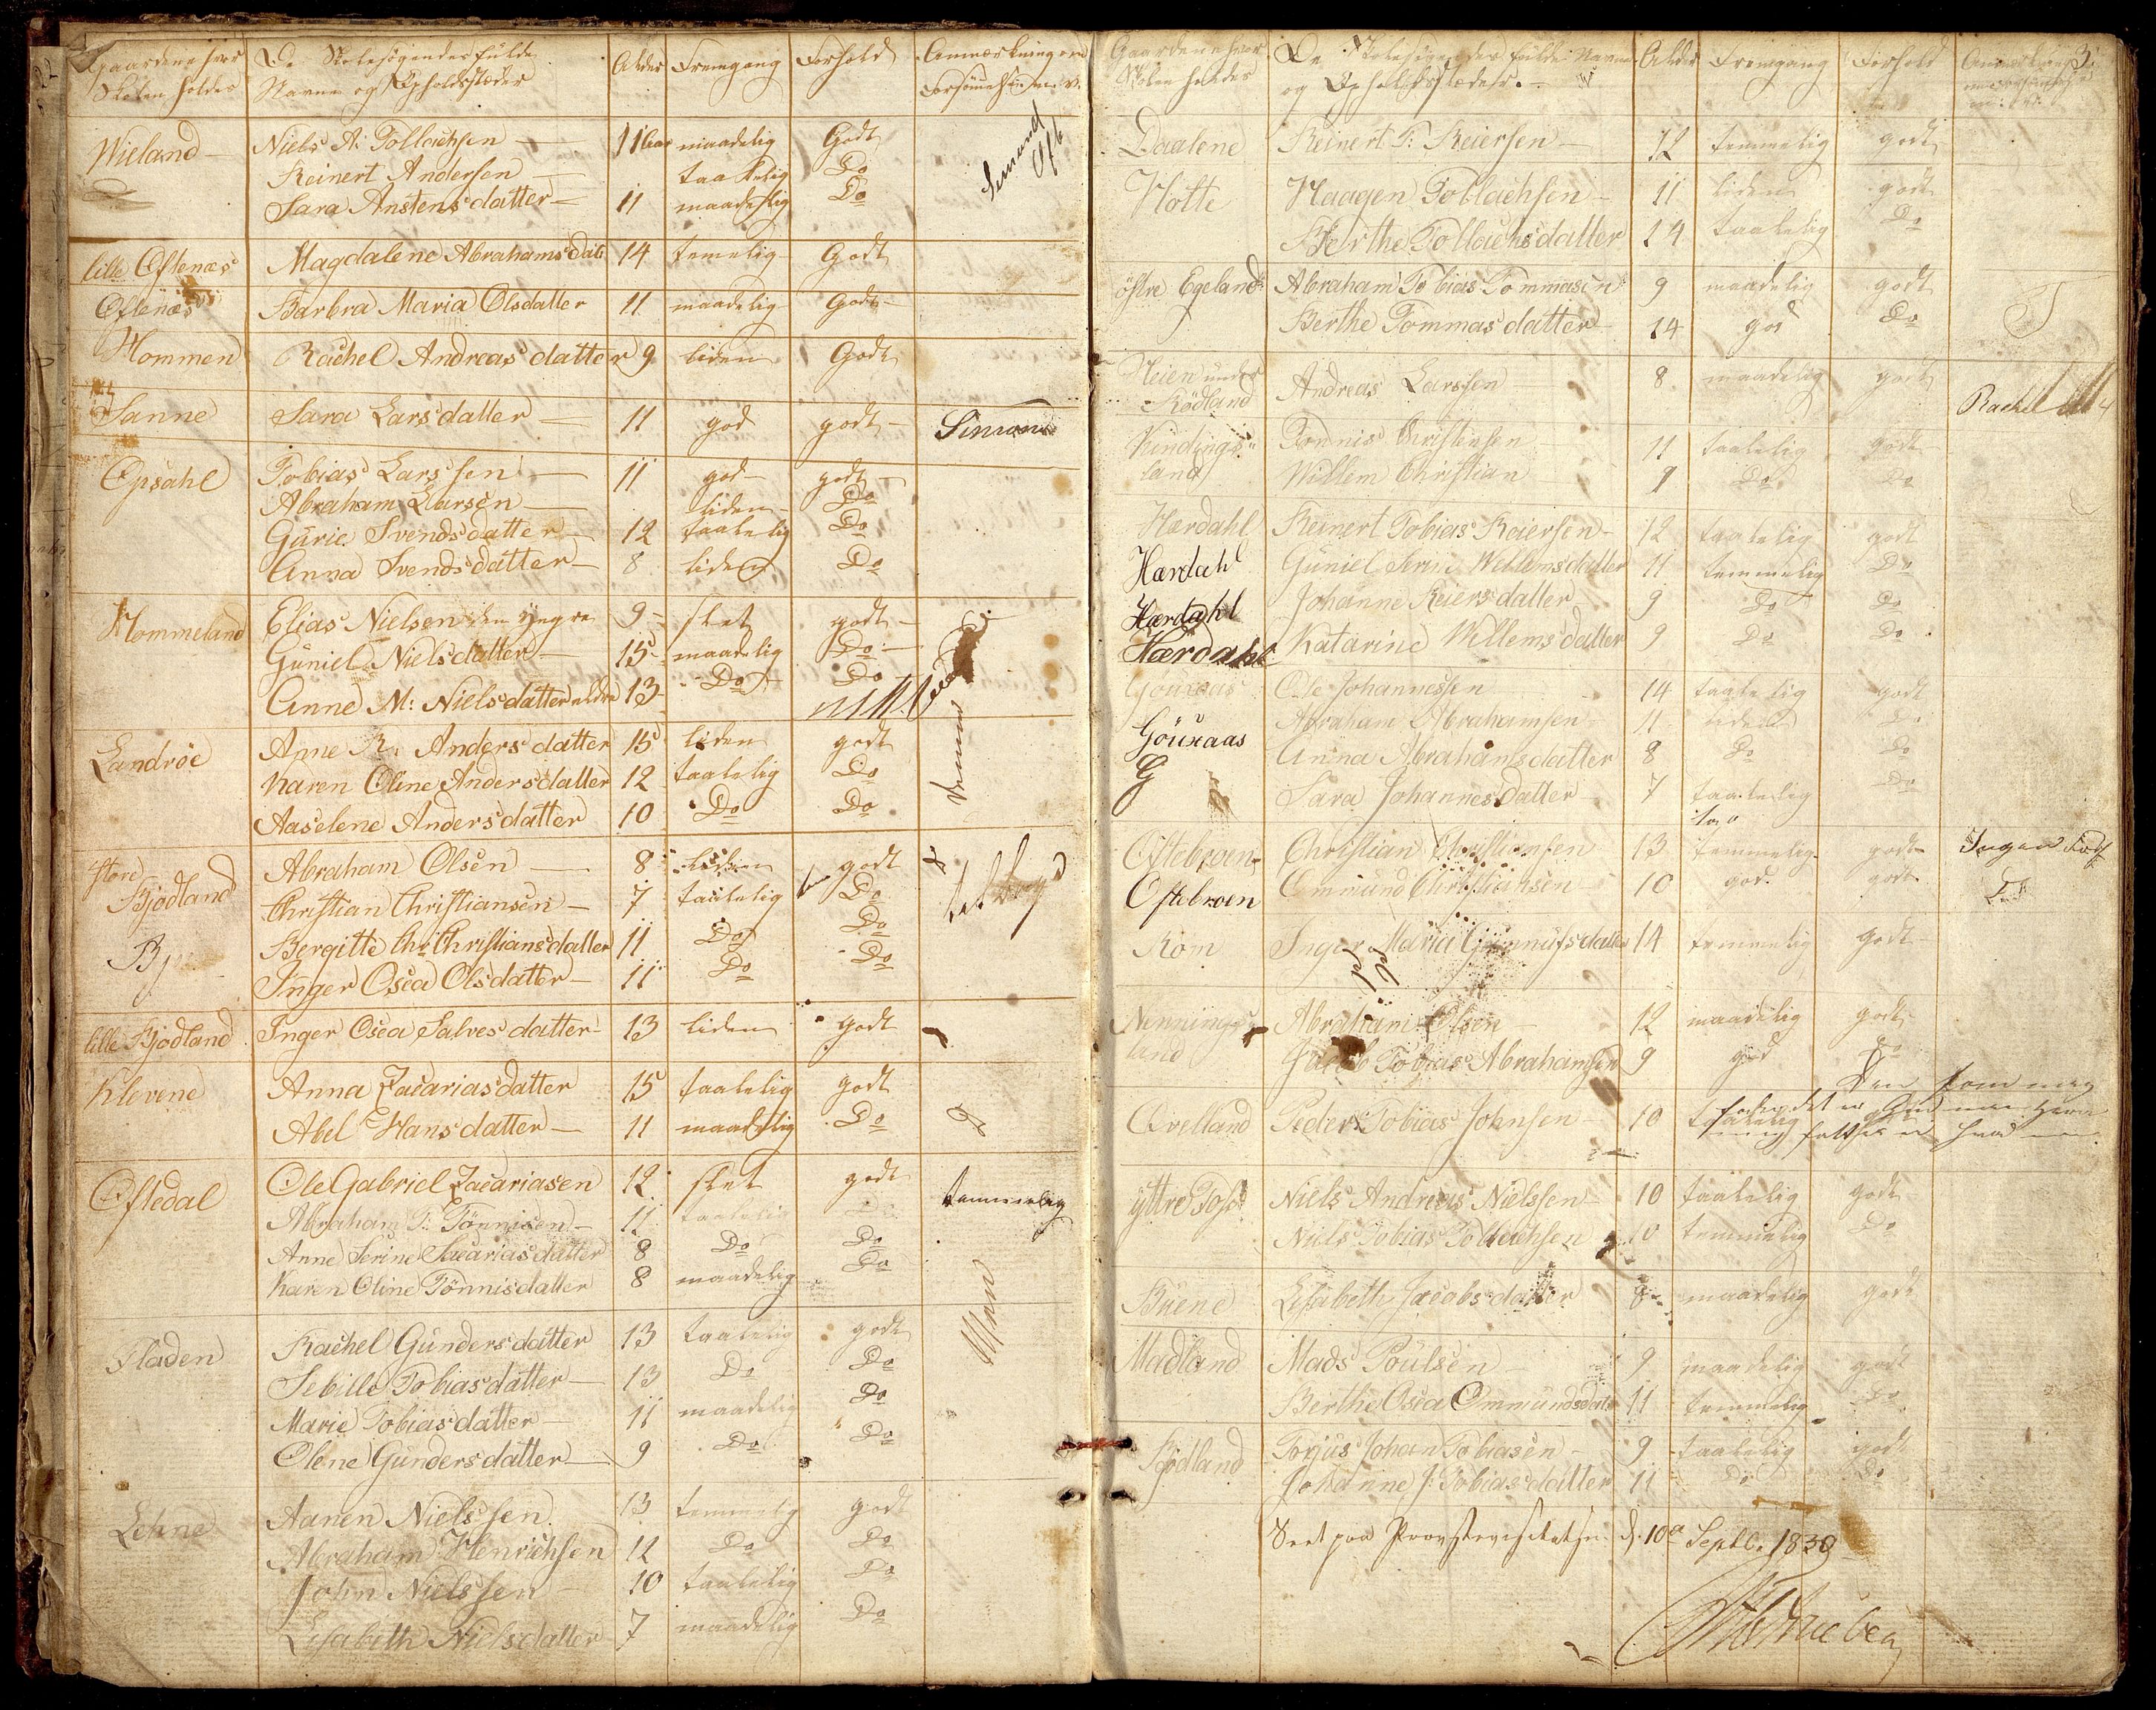 Gaardene hvor De Skolesøgendes fulde Alder Fremgang Forhold Anmærkning om
Skolen holdes Navne og Opholdsstæder Forsømmelser m. v.
Wieland Niels A: Tollachsen 11 Aar maadelig Godt
Reinert Andersen taalelig Do
Sara Anstensdatter 11 maadelig Do
lille Oftenæs Magdalene Abrahamsdatt 14 temelig Godt
Oftenæs Barbra Maria Olsdatter 11 maadelig Godt
Hommen Rachel Andreasdatter 9 liden Godt
Sanne Sara Larsdatter 11 god godt Simon
Opsahl Tobias Larssen 11 god godt
Abraham Larsen liden Do
Gurie Svendsdatter 12 taalelig Do
Anna Svendsdatter 8 liden Do
Hommeland Elias Nielsen den yngre 9 slet godt
Guniel Nielsdatter 15 maadelig Do
Anne M: Nielsdatter ældre 13 Do Do
Landröe Anne R. Andersdatter 15 liden godt
Karen Oline Andersdatter 12 taalelig Do
Aaselene Andersdatter 10 Do Do
store Bjodland Abraham Olsen 8 liden godt
Christian Christiansen 7 taalelig Do
Bergitte Chr: Christiansdatter 11 Do Do
Inger Osea Olsdatter 11 Do Do
lille Bjodland Inger Osea Salvesdatter 13 liden godt
Klevene Anna Zacariasdatter 15 taalelig godt
Abel Hansdatter 11 maadelig Do
Oftedal Ole Gabriel Zacariasen 12 slet godt temmelig
Abraham T: Tönnisen 11 taalelig Do
Anne Serine Sacariasdatter 8 Do Do
Karen Oline Tönnisdatter 8 maadelig Do
Fladen Rachel Gundersdatter 13 taalelig godt
Sebille Tobiasdatter 13 Do Do
Marie Tobiasdatter 11 maadelig Do
Olene Gundersdatter 9 Do Do
Lehne Aanen Nielssen 13 temmelig godt
Abraham Henrichsen 12 Do Do
John Nielssen 10 taalelig Do
Lisabeth Nielsdatter 7 maadelig Do
Gaardene hvor De Skolesögendes fulde Navne Alder Fremgang Forhold 3
Skolen holdes og Opholdsstæder.
Daalene Reinert T: Reiersen 12 temmelig godt
Hotte Haagen Tollachsen 11 liden godt
Berthe Tollachsdatter 14 taalelig Do
östre Egeland Abraham Tobias Tommasen 9 maadelig godt
Berthe Tommasdatter 14 god Do
Heien under Rödland Andreas Larssen 8 maadelig godt Rachel
Kindingsland Tönnis Christensen 11 taalelig godt
Willem Christian 9 Do Do
Hærdahl Reinert Tobias Reiersen 12 taalelig godt
Hærdahl Guniel Serine Wellemsdatter 11 temmelig Do
Hærdahl Johanne Reiersdatter 9 Do Do
Hærdahl Katarine Wellemsdatter 9 Do Do
Gouxaas Ole Johannessen 14 taalelig godt
Gouxaas Abraham Abrahamsen 11 liden Do
G Anna Abrahamsdatter 8 Do Do
Sara Johannesdatter 7 taalelig Do
Oftebroen Christian Christiansen 13 temmelig godt Ingen
Oftebroen Ommund Christiansen 10 god godt Do
Rom Inger Maria Gunnufsdatter 14 temmelig godt
Nenningsland Abraham Olsen 12 maadelig godt
Jacob Tobias Abrahamsen 9 god Do
Qvelland Peder Tobias Johnsen 10 taalelig
yttre Tofs Niels Andreas Nielssen 10 taalelig godt
Niels Tobias Tollachsen 10 temmelig Do
Buene Lisabeth Jacobsdatter 8 maadelig godt
Madland Mads Poulsen 9 maadelig godt
Berthe Osea Ommundsdatter 11 temmelig Do
Bjödland Torjus Johan Tobiasen 9 taalelig godt
Johanne J: Tobiasdatter 11 Do Do
Seet paa Provstevisitatsen d. 10de Septb. 1830